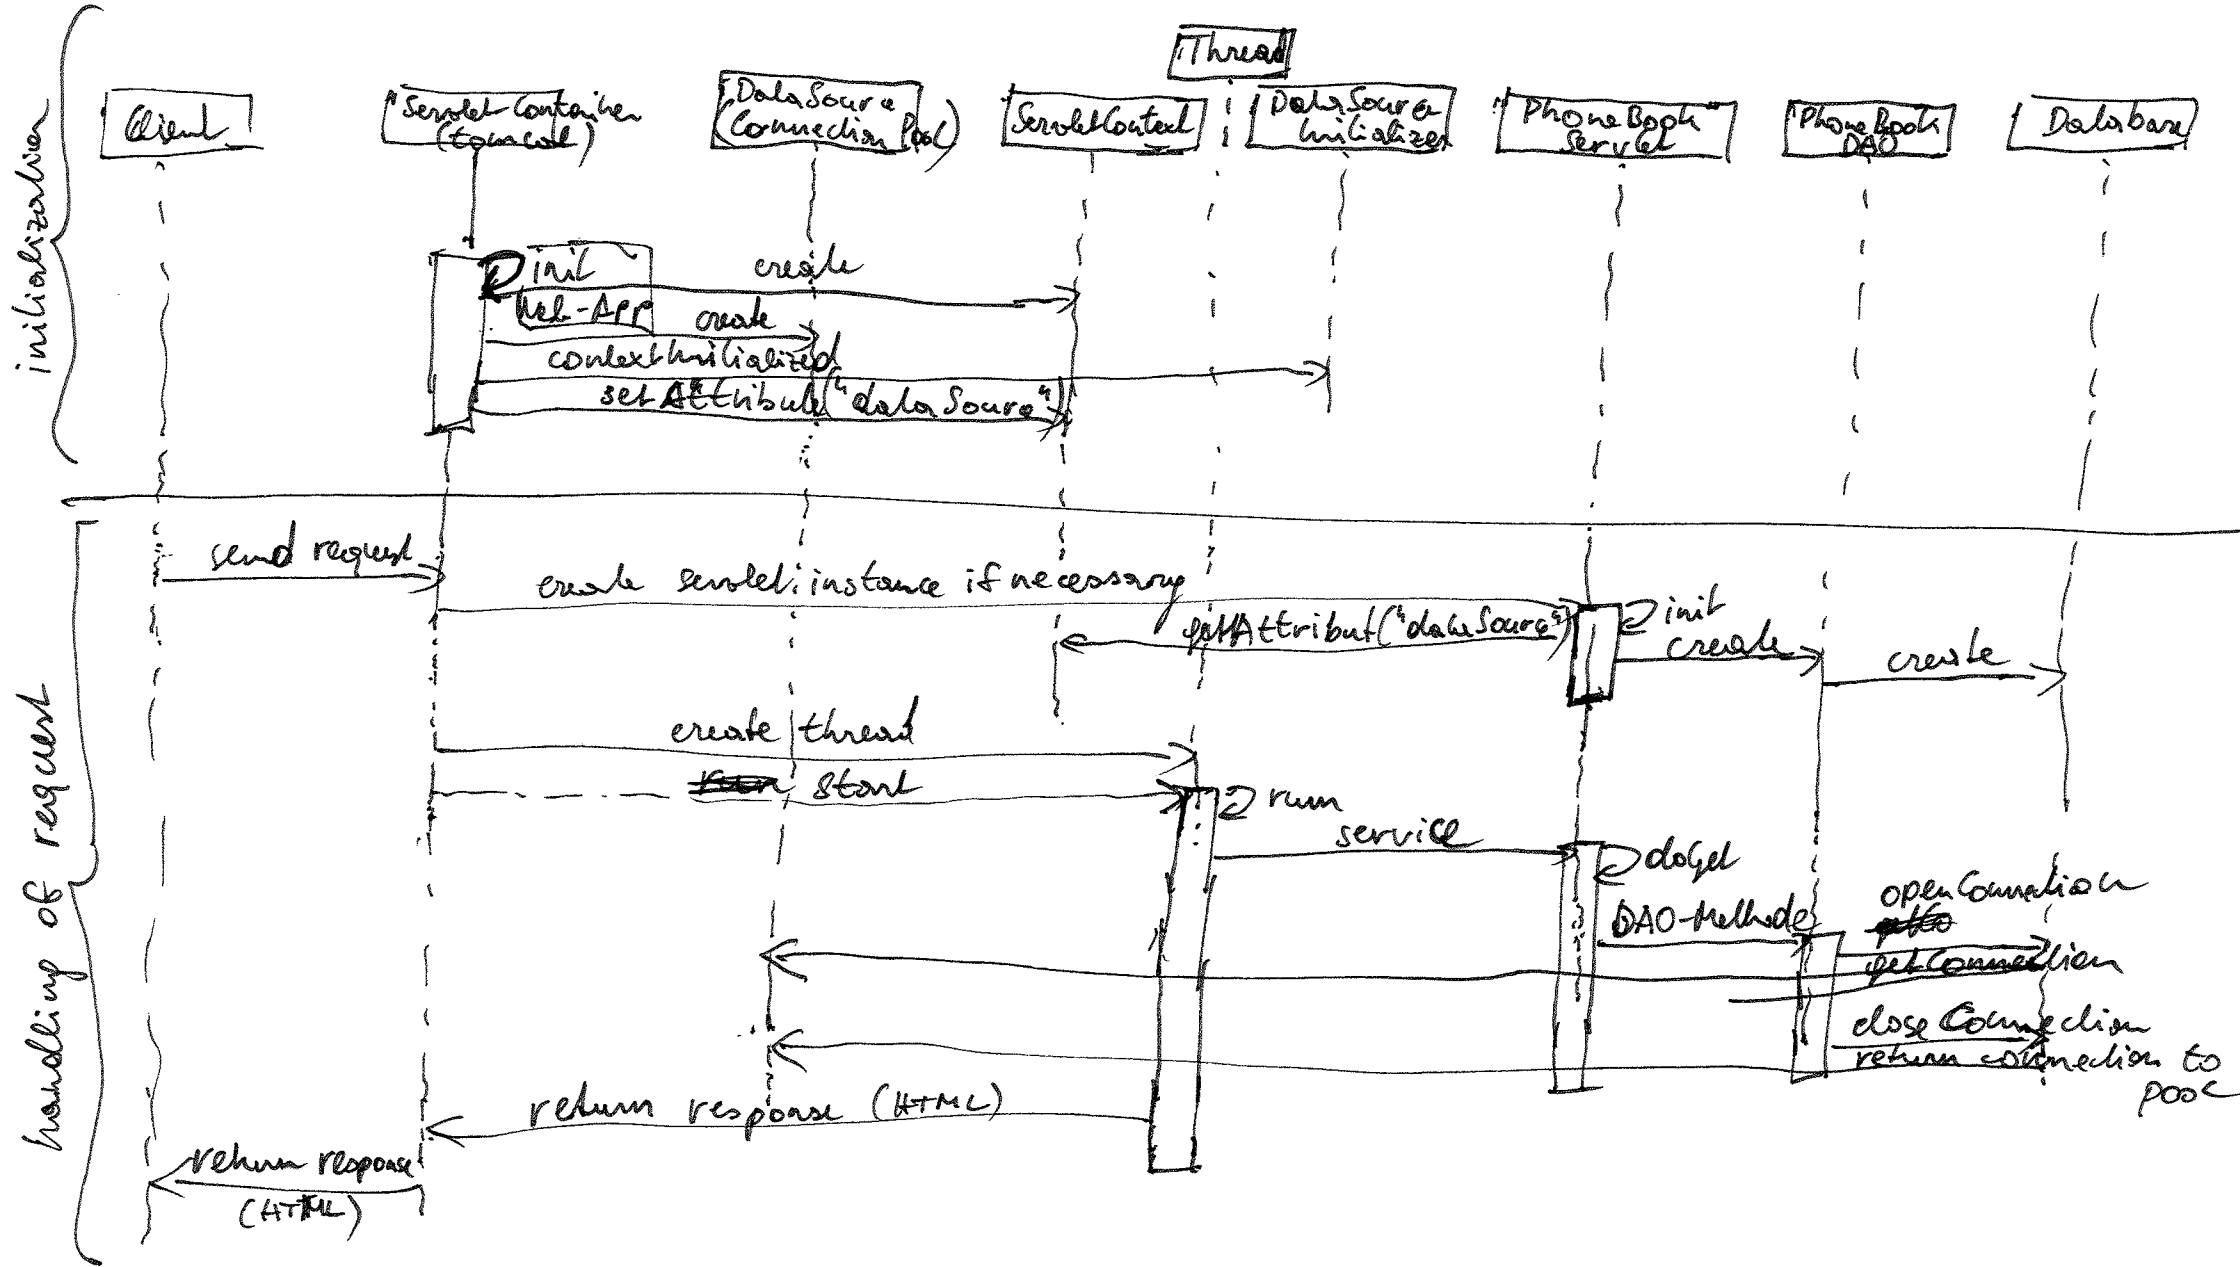 :Thread
Client
:ServletContainer
(tomcat)
:DataSource
(Connection Pool)
ServletContext
DataSource
Initializer
:PhoneBook
Servlet
:PhoneBook
DAO
Database
initialization
init
Web-App
create
create
contextInitialized
setAttribute("dataSource")
send request
create servlet instance if necessary
init
getAttribut("dataSource")
create
create
create thread
start
run
service
doGet
DAO-Methode
openConnection
getConnection
closeConnection
return connection to
pool
return response (HTML)
return response
(HTML)
handling of request